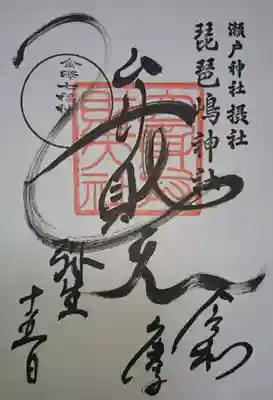 瀬戸神社 摂社
琵琶嶋神社
弁財天
金澤七福神
弥生
十五日